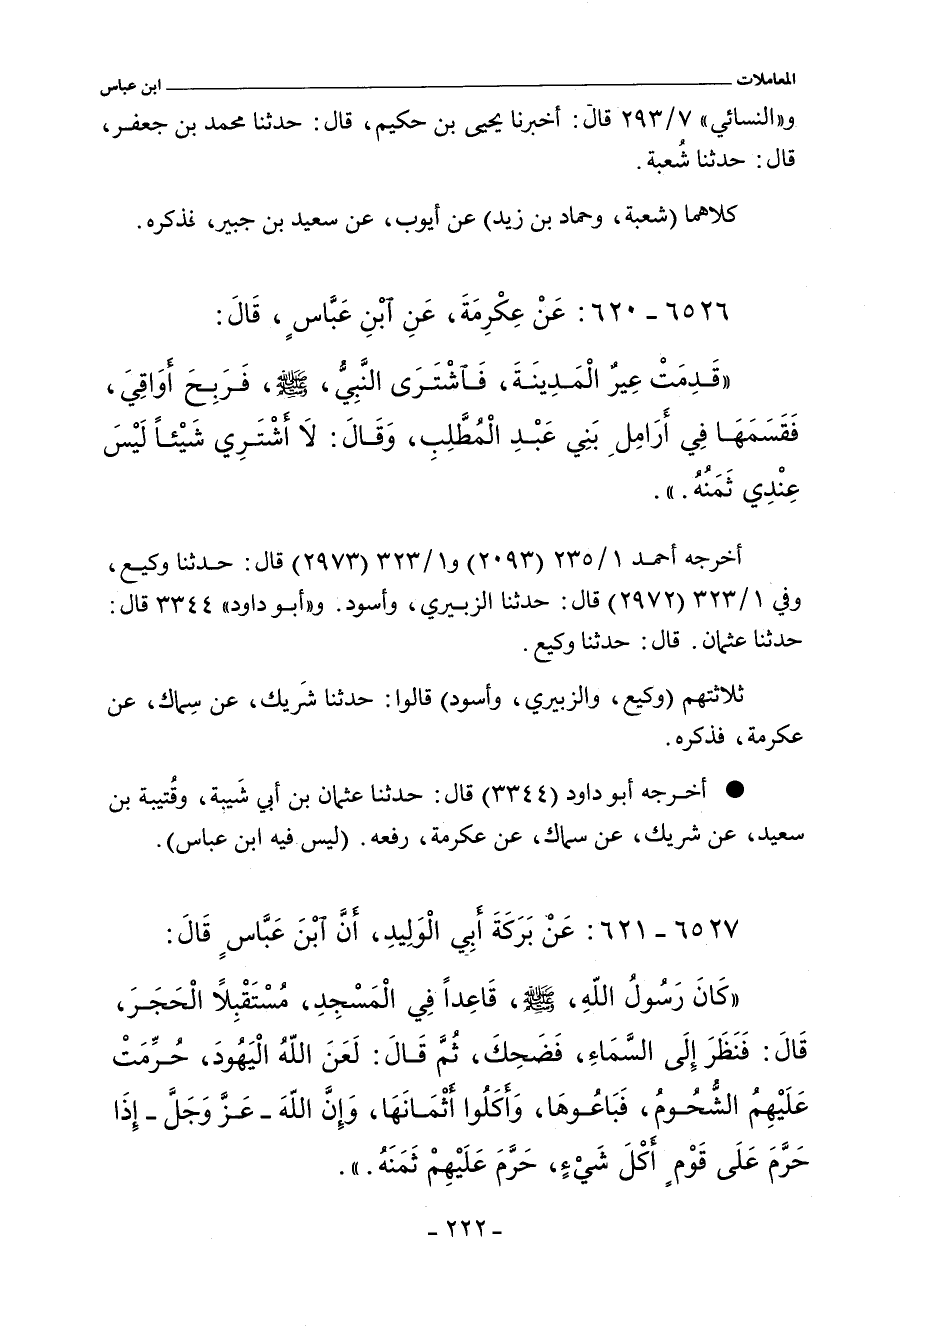 المعاملات ــــــــــــــــ ابن عباس
و«النسائي» ٢٩٣/٧ قال: أخبرنا يحيى بن حكيم، قال: حدثنا محمد بن جعفر،
قال: حدثنا شُعبة.
كلاهما (شعبة، وحماد بن زيد) عن أيوب، عن سعيد بن جبير، فذكره.
٦٥٢٦ ـ ٦٢٠: عَنْ عِكْرِمَةَ، عَنِ ٱبْنِ عَبَّاسٍ، قَالَ:
«قَدِمَتْ عِيرٌ الْمَدِينَةَ، فَٱشْتَرَى النَّبِيُّ، ﷺ، فَرَبِحَ أَوَاقِيَ،
فَقَسَمَهَا فِي أَرَامِلِ بَنِي عَبْدِ الْمُطَّلِبِ، وَقَالَ: لَا أَشْتَرِي شَيْئاً لَيْسَ
عِنْدِي ثَمَنُهُ.».
أخرجه أحمد ٢٣٥/١ (٢٠٩٣) و٣٢٣/١ (٢٩٧٣) قال: حدثنا وكيع،
وفي ٣٢٣/١ (٢٩٧٢) قال: حدثنا الزبيري، وأسود. و«أبو داود» ٣٣٤٤ قال:
حدثنا عثمان. قال: حدثنا وكيع.
ثلاثتهم (وكيع، والزبيري، وأسود) قالوا: حدثنا شَريك، عن سِماك، عن
عكرمة، فذكره.
● أخرجه أبو داود (٣٣٤٤) قال: حدثنا عثمان بن أبي شَيبة، وقُتيبة بن
سعيد، عن شريك، عن سماك، عن عكرمة، رفعه. (ليس فيه ابن عباس).
٦٥٢٧ ـ ٦٢١: عَنْ بَرَكَةَ أَبِي الْوَلِيدِ، أَنَّ ٱبْنَ عَبَّاسٍ قَالَ:
«كَانَ رَسُولُ اللّهِ، ﷺ، قَاعِداً فِي الْمَسْجِدِ، مُسْتَقْبِلًا الْحَجَرَ،
قَالَ: فَنَظَرَ إِلَى السَّمَاءِ، فَضَحِكَ، ثُمَّ قَالَ: لَعَنَ اللّهُ الْيَهُودَ، حُرِّمَتْ
عَلَيْهِمُ الشُّحُومُ، فَبَاعُوهَا، وَأَكَلُوا أَثْمَانَهَا، وَإِنَّ اللّهَ ـ عَزَّ وَجَلَّ ـ إِذَا
حَرَّمَ عَلَى قَوْمٍ أَكْلَ شَيْءٍ، حَرَّمَ عَلَيْهِمْ ثَمَنَهُ.».
ـ ٢٢٢ ـ